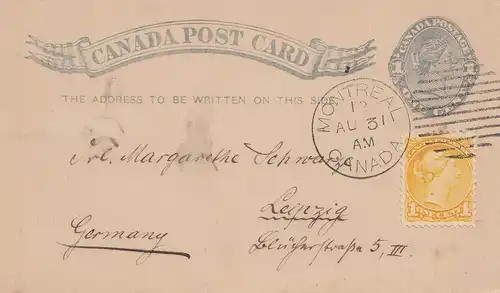 CANADA POST CARD
CANADA POSTAGE
THE ADDRESS TO BE WRITTEN ON THIS SIDE
MONTREAL
12
AU 31
AM
CANADA
Frl. Margarethe Schwarz
Leipzig
Blücherstraße 5, III.
Germany
1 CENT 1